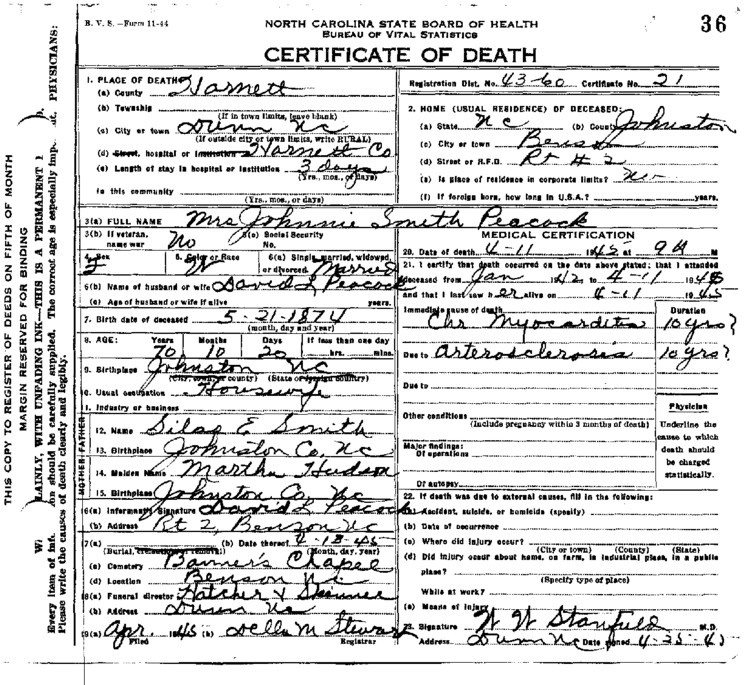 B. V. S.—Form 11-44
NORTH CAROLINA STATE BOARD OF HEALTH
BUREAU OF VITAL STATISTICS
36
CERTIFICATE OF DEATH
1. PLACE OF DEATH
(a) County Harnett
(b) Township
(If in town limits, leave blank)
(c) City or town Dunn NC
(If outside city or town limits, write RURAL)
(d) Street, hospital or institution Harnett Co
(e) Length of stay in hospital or institution 3 days
(Yrs., mos., or days)
In this community
(Yrs., mos., or days)
Registration Dist. No. 43-60 Certificate No. 21
2. HOME (USUAL RESIDENCE) OF DECEASED:
(a) State NC (b) County Johnston
(c) City or town Benson
(d) Street or R.F.D. Rt # 2
(e) Is place of residence in corporate limits? No
(f) If foreign born, how long in U.S.A.? years.
3(a) FULL NAME Mrs Johnnie Smith Peacock
3(b) If veteran, name war No
3(c) Social Security No.
4. Sex F
5. Color or Race W
6(a) Single, married, widowed, or divorced Married
6(b) Name of husband or wife David L Peacock
(c) Age of husband or wife if alive years.
7. Birth date of deceased 5-21-1874
(month, day and year)
8. AGE: Years Months Days If less than one day
70 10 20 hrs. mins.
9. Birthplace Johnston NC
(City, town, or county) (State or foreign country)
10. Usual occupation Housewife
11. Industry or business
FATHER
12. Name Silas E Smith
13. Birthplace Johnston Co, NC
MOTHER
14. Maiden Name Martha Hudson
15. Birthplace Johnston Co, NC
16(a) Informant's Signature David L Peacock
(b) Address Rt 2, Benson NC
17(a) (b) Date thereof 4-13-45
(Burial, cremation or removal) (Month, day, year)
(c) Cemetery Banner's Chapel
(d) Location Benson NC
18(a) Funeral director Hatcher & Skinner
(b) Address Dunn NC
19(a) Apr. 1945 (b) Della M Stewart
Filed Registrar
MEDICAL CERTIFICATION
20. Date of death 4-11 1945 at 9 A M
21. I certify that death occurred on the date above stated; that I attended
deceased from Jan 1942, to 4-11 1945
and that I last saw her alive on 4-11 1945
Immediate cause of death Duration
Chr Myocarditis 10 yrs?
Due to Arterosclerosis 10 yrs?
Due to
Other conditions
(Include pregnancy within 3 months of death)
Major findings:
Of operations
Of autopsy
Physician
Underline the
cause to which
death should
be charged
statistically.
22. If death was due to external causes, fill in the following:
(a) Accident, suicide, or homicide (specify)
(b) Date of occurrence
(c) Where did injury occur?
(City or town) (County) (State)
(d) Did injury occur about home, on farm, in industrial place, in a public
place?
(Specify type of place)
While at work?
(e) Means of injury
23. Signature W W Stanfield M.D.
Address Dunn NC Date signed 4-25-45
THIS COPY TO REGISTER OF DEEDS ON FIFTH OF MONTH
MARGIN RESERVED FOR BINDING
LAINLY, WITH UNFADING INK—THIS IS A PERMANENT
Every item of inf. on should be carefully supplied. The correct age is especially imp. PHYSICIANS:
Please write the causes of death clearly and legibly.